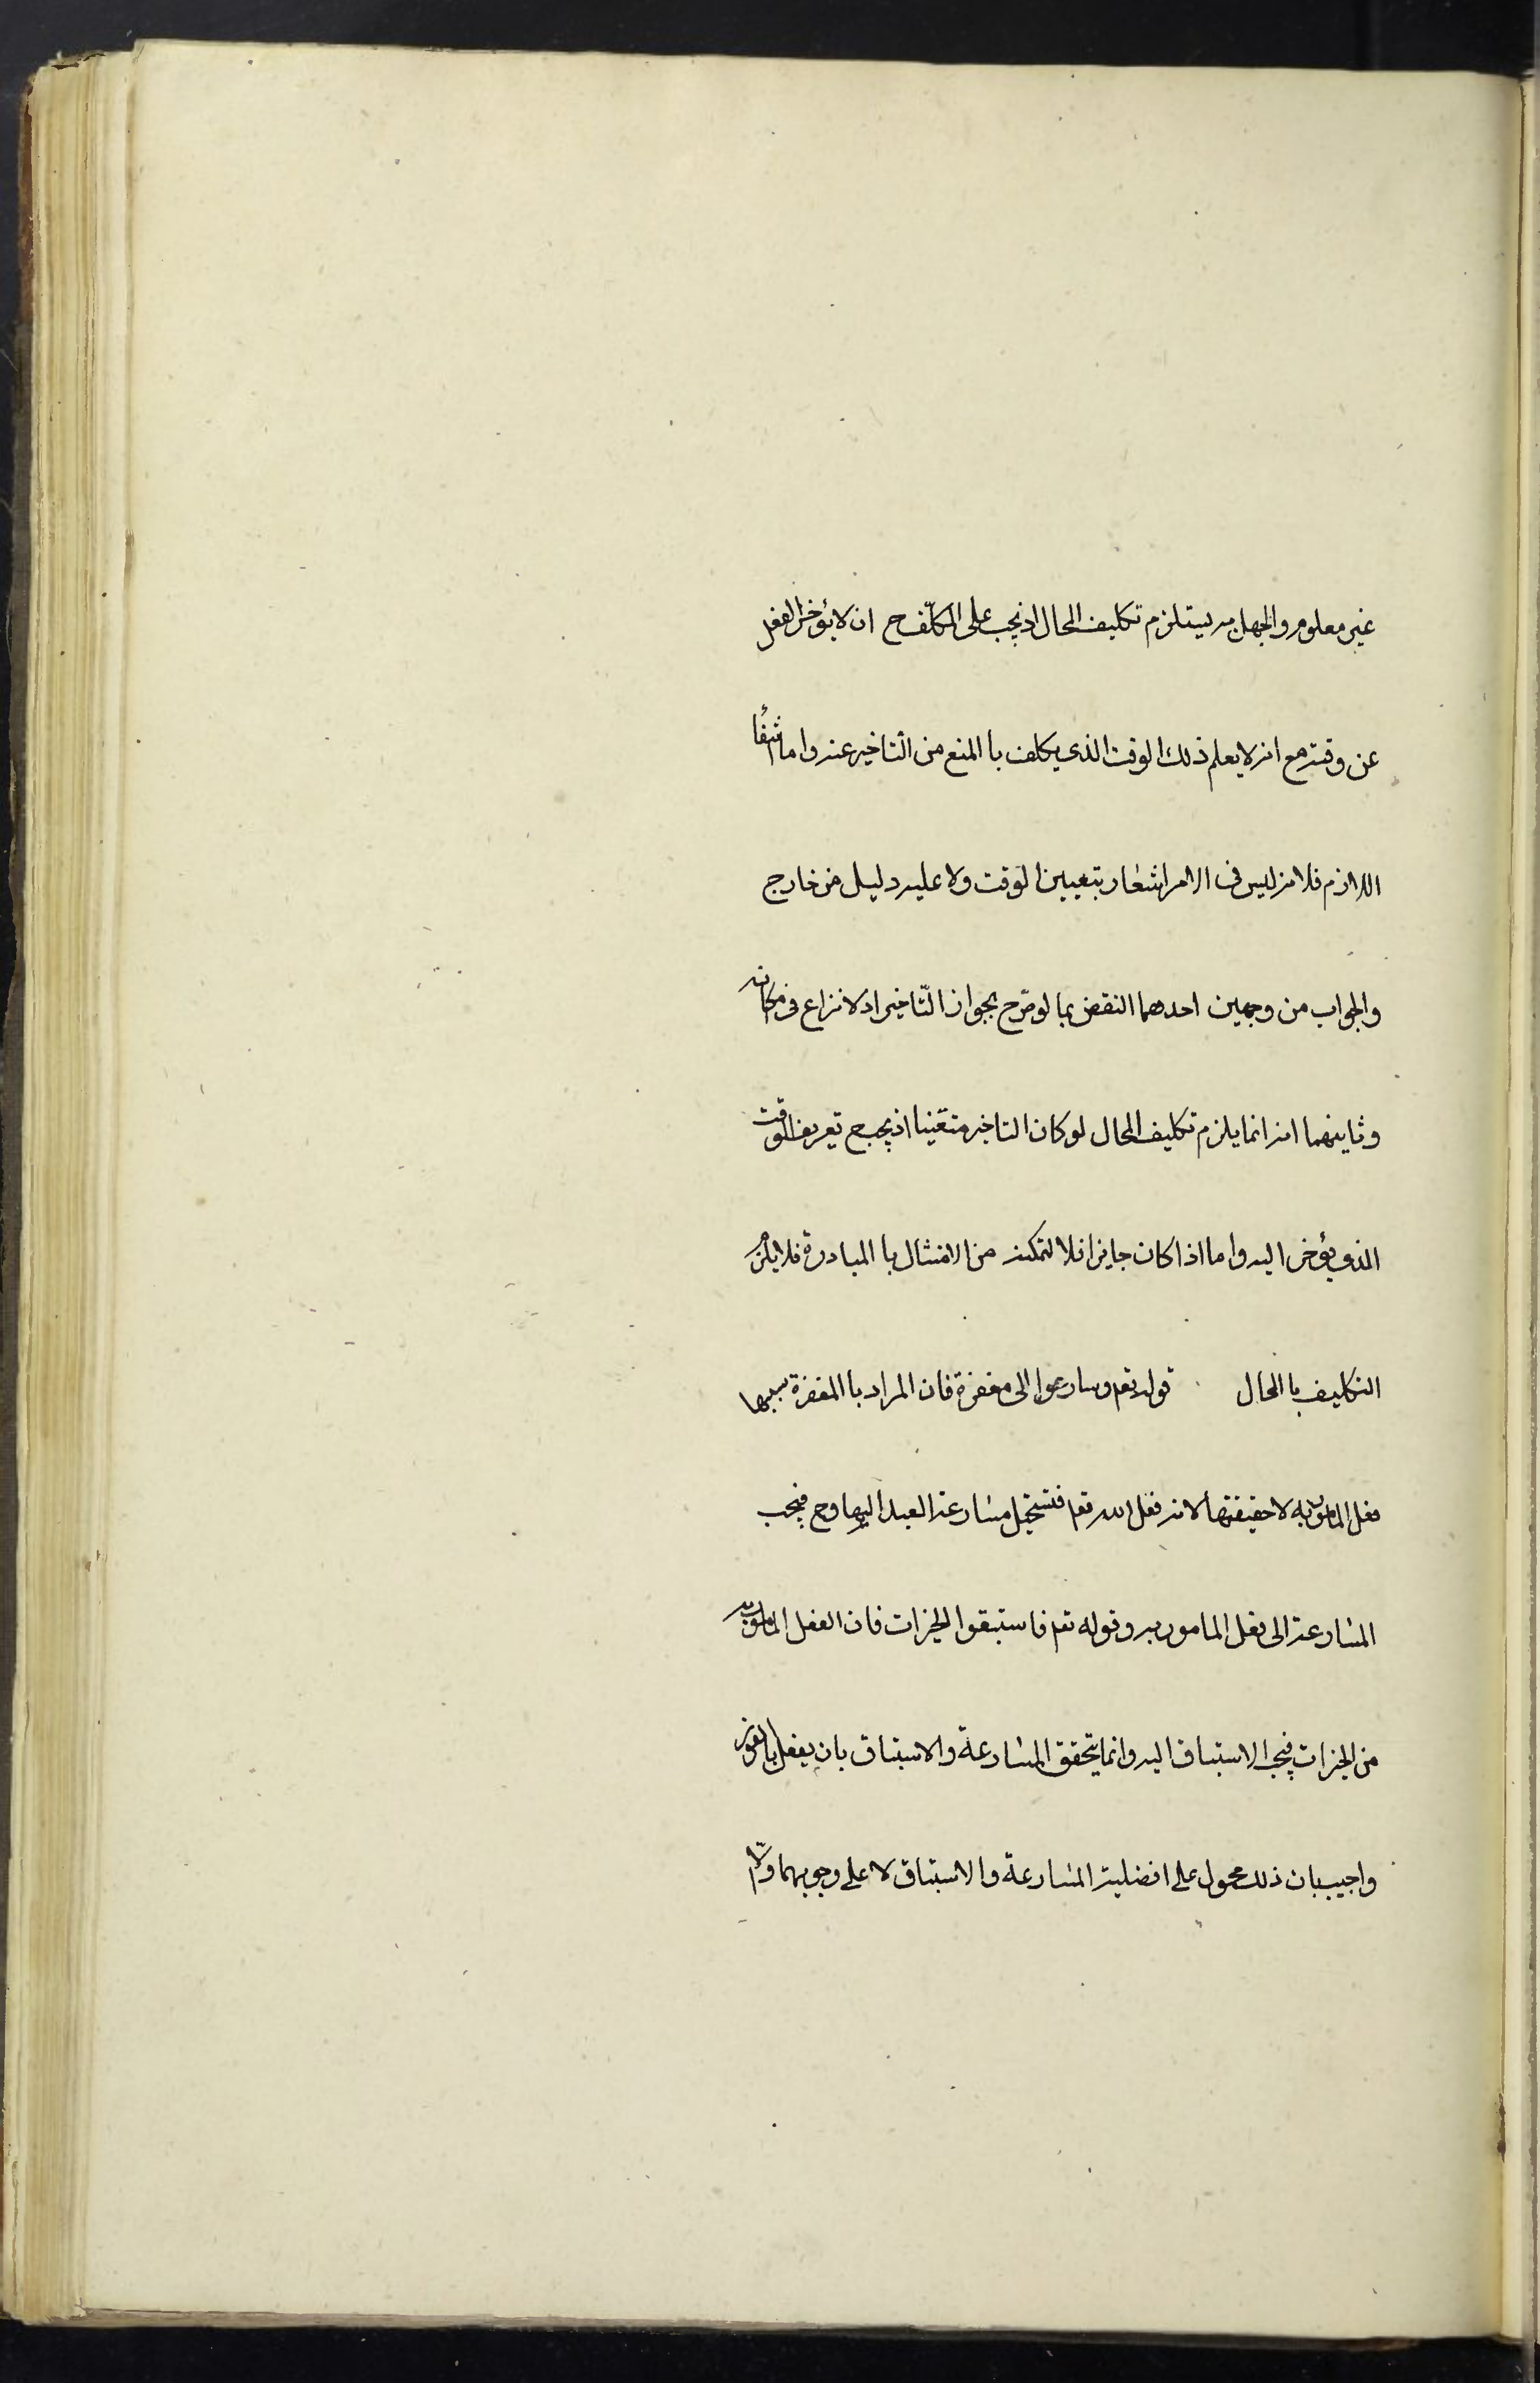 غير معلوم والجهل به يستلزم تكليف المحال اذ يجب على المكلّف ح ان لا يؤخر الفعل
عن وقته مع انه لا يعلم ذلك الوقت الذي يكلف با المنع من التاخير عنه واما انتفاء
اللازم فلانه ليس فى الامر اشعار بتعيين الوقت ولا عليه دليل من خارج
والجواب من وجهين احدهما النقض بما لو صّرح بجواز التّاخير اذ لا نزاع فى امكانه
وثاينهما انه انما يلزم تكليف المحال لو كان التاخير متعّينا اذ يجب ح تعريف الوقت
الذى يؤخر اليه واما اذا كان جايزا فلا لتمكنه من الامتثال با المبادرة فلا يلزم
التكليف با المحال قوله تعم وسارعوا الى مغفرة فان المراد با المغفرة سببها
فعل المامور به لا حقيقتها لانه فعل الله تعم فتستحيل مسارعة العبد اليها وح فيجب
المسارعة الى فعل المامور به وقوله تعم فاستبقوا الخيرات فان الفعل المامور به
من الخيرات فيجب الاستباق اليه وانما يتحقق المسارعة والاستباق بان يفعل بالفور
واجيب بان ذلك محمول على افضلية المسارعة والاستباق لا على وجوبهما والّا